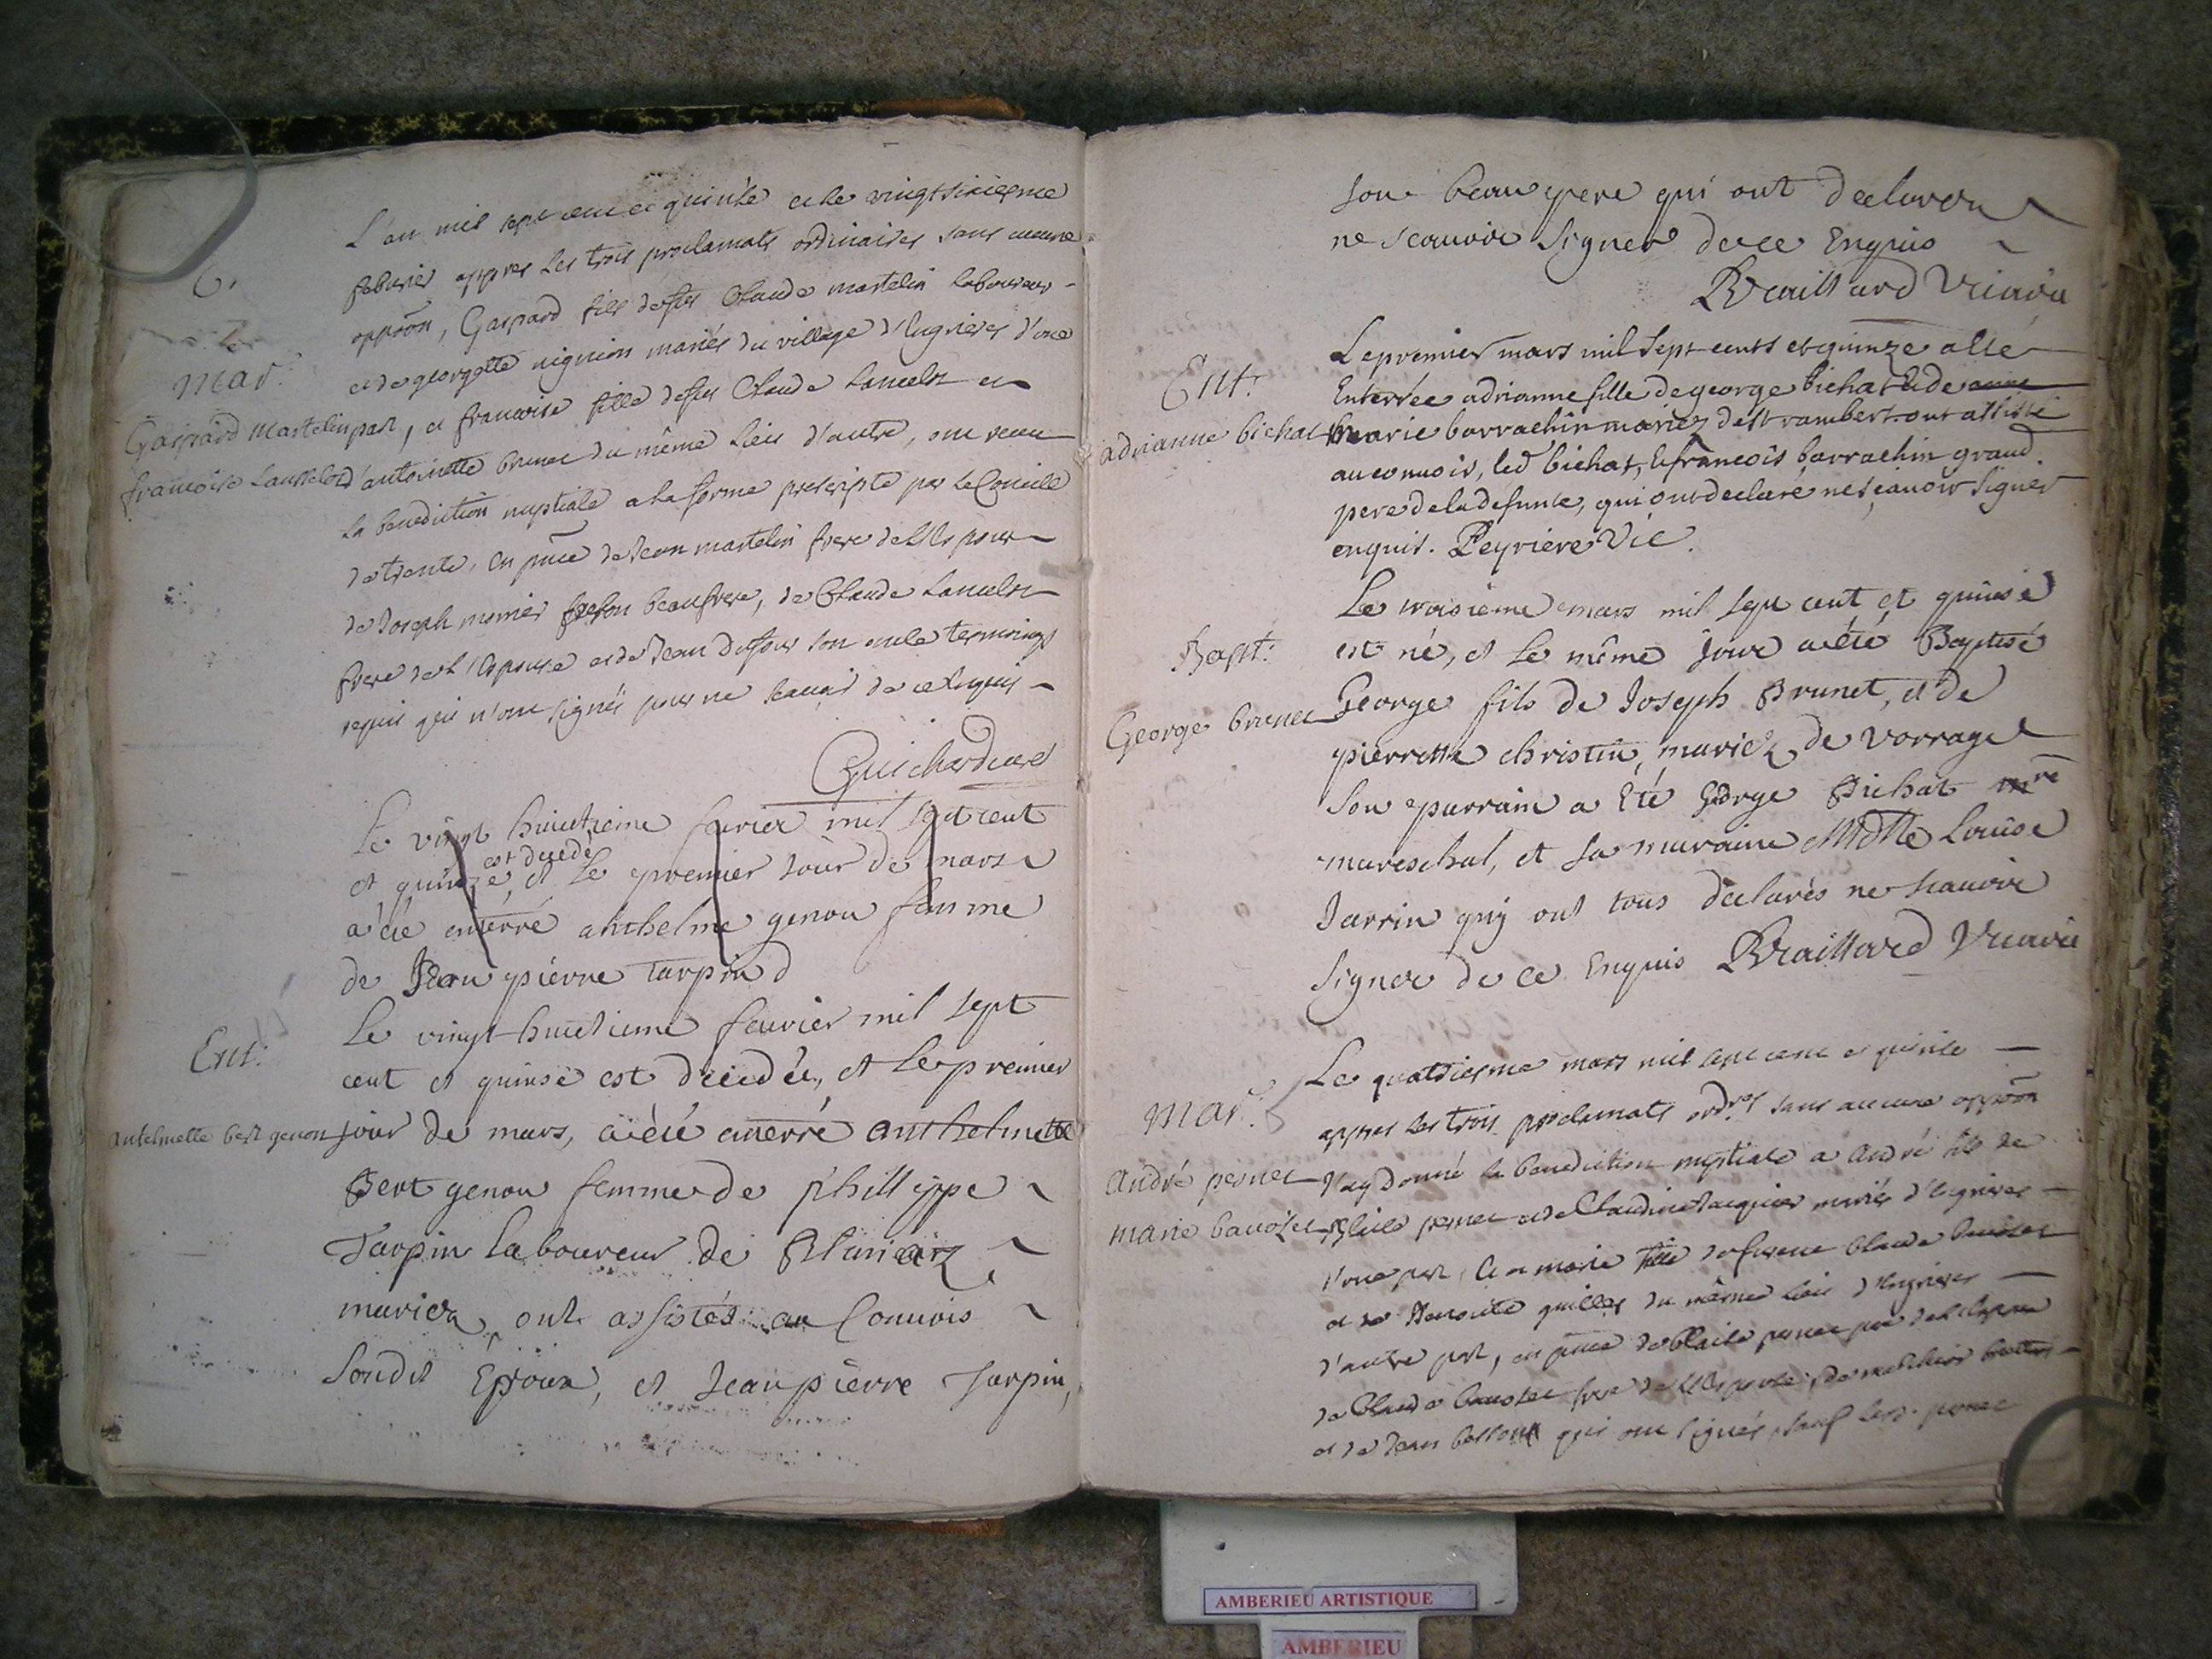 L'an mil sept cent et quinze et le vingtsixiesme
febvrier appres les trois proclamats ordinaires sans aucune
oppoõn, Gaspard fils de feu Claude martelin laboureur
et de georgette uignion mariés du village d'Ingrieres d'une
Mar:
Gaspard Martelin
françoise Lancelot
part, et francoise fille de feu Claude Lancelot et
d'antoinette brunet du même lieu d'autre, ont receu
la benediction nuptiale a la forme prescripte par le Concille
de trente, en pñce de Jean martelin frere de l'Espoux
de Joseph monier son beaufrere, de Claude Lancelot
frere de l'Espouse et de Jean Dufour son oncle temoings
requis qui n'ont signés pour ne scauoir de ce Enquis
Guichard curé
Le vingt huictieme fevrier mil sept cent
est decedé
et quinze, et le premier jour de mars
a été enterré anthelme genou femme
de Jean pierre tarpin d
Ent:
Antelmette bert genon
Le vingt-huictieme feurier mil sept
cent et quinse est decedée, et le premier
jour de mars, a été enterré anthelmette
Bert genou femme de phillippe
Tarpin laboureur de
mariez, ont assistés au Conuois
sondit Epoux, et Jean pierre Tarpin,
son beau pere qui ont declaré
ne scauoir signer de ce Enquis
Braillard Vicaire
Ent:
adrianne bichat
Le premier mars mil sept cents et quinze a esté
Enterrée adrianne fille de george bichat & de anne
Marie barrachin mariez de st rambert. ont assisté
au conuois, led bichat, & francois barrachin grand
pere de la defunte, qui ont declaré ne sçauoir signer
enquis. Peyriere Vic.
Bapt:
George brunet
Le troisieme mars mil sept cent et quinse
est né, et le même jour a été Baptisé
George fils de Joseph Brunet, et de
pierrette christin, mariez de Vorrage
son parrain a été George Bichat mre
mareschal, et sa maraine Mdlle Louise
Jarrin quy ont tous declarés ne scauoir
signer de ce Enquis Braillard Vicaire
Mar:
André pernet
Marie bauozet
Le quatriesme mars mil sept cent et quinze
appres les trois proclamats ordres sans aucune oppoõn
J'ay donné la benediction nuptiale a André fils de
Blaise pernet et de Claudine Jacquier mariés d'Ingrieres
d'une part, et a marie fille de feu Claude bauozet
et de du même lieu d'Ingrieres
d'autre part, en pñce de Blaise pernet pere de l'Espoux
de Claude bauozet frere de l'Espouse, de melchior
et de Jean qui ont signés, sauf led. pernet
AMBERIEU ARTISTIQUE
AMBERIEU